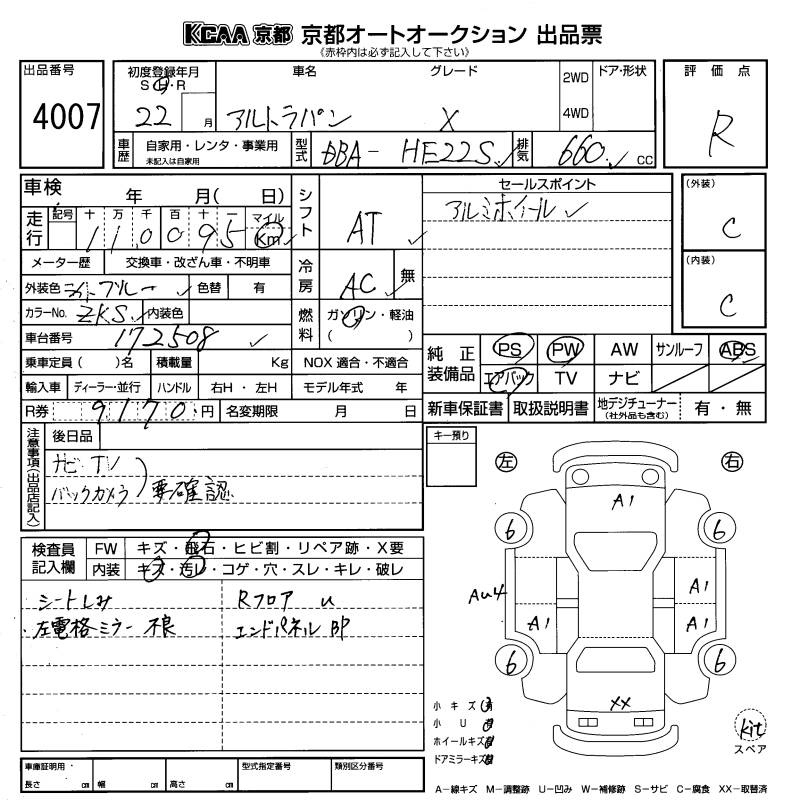 KCAA 京都 京都オートオークション 出品票
《赤枠内は必ず記入して下さい》
出品番号 初度登録年月 車名 グレード 2WD ドア・形状 評価点
S H・R
4007 22 月 アルトラパン X 4WD R
車歴 自家用・レンタ・事業用 型式 DBA- HE22S 排気 660 cc
未記入は自家用
車検 年 月( 日) シフト AT セールスポイント (外装)
アルミホイール C
走行 記号 十 万 千 百 十 一 マイル
110095 Km
メーター歴 交換車・改ざん車・不明車 冷房 AC 無 (内装)
外装色 ライトブルー 色替 有 C
カラーNo. ZKS 内装色 燃料 ガソリン・軽油
車台番号 172508 ( )
乗車定員( )名 積載量 Kg NOX 適合・不適合 純正装備品 PS PW AW サンルーフ ABS
輸入車 ディーラー・並行 ハンドル 右H・左H モデル年式 年 エアバック TV ナビ
R券 9170 円 名変期限 月 日 新車保証書 取扱説明書 地デジチューナー 有・無
(社外品も含む)
注意事項(出品店記入) 後日品 キー預り
ナビ・TV
バックカメラ 要確認
左 右
検査員記入欄 FW キズ・飛石・ヒビ割・リペア跡・X要
内装 キズ・汚レ・コゲ・穴・スレ・キレ・破レ
シートしみ Rフロア u
・左電格ミラー 不良 エンドパネル BP
A1
6 6
Au4 A1
A1 A1
6 6
XX
小キズ 有
小U 有
ホイールキズ 有
ドアミラーキズ 有
kit
スペア
車庫証明用・ 型式指定番号 類別区分番号
長さ cm 幅 cm 高さ cm
A−線キズ M−調整跡 U−凹み W−補修跡 S−サビ C−腐食 XX−取替済